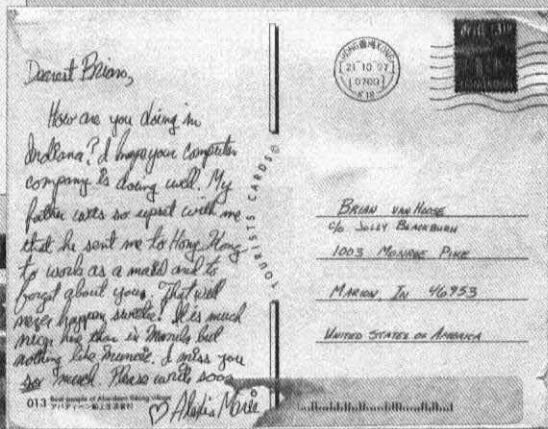 Dearest Brian,
How are you doing in
Indiana? I hope your computer
company is doing well. My
father was so upset with me
that he sent me to Hong Kong
to work as a maid and to
forget about you. That will
never happen sweetie! It is much
nicer here than in Manila but
nothing like Muncie. I miss you
so much. Please write soon
♡ Alexis Marie
013 Boat people of Aberdeen fishing village
TOURISTS CARDS®
HONG KONG
21 10 97
0700
BRIAN VAN HOOSE
C/O JOLLY BLACKBURN
1003 MONROE PIKE
MARION IN 46953
UNITED STATES OF AMERICA